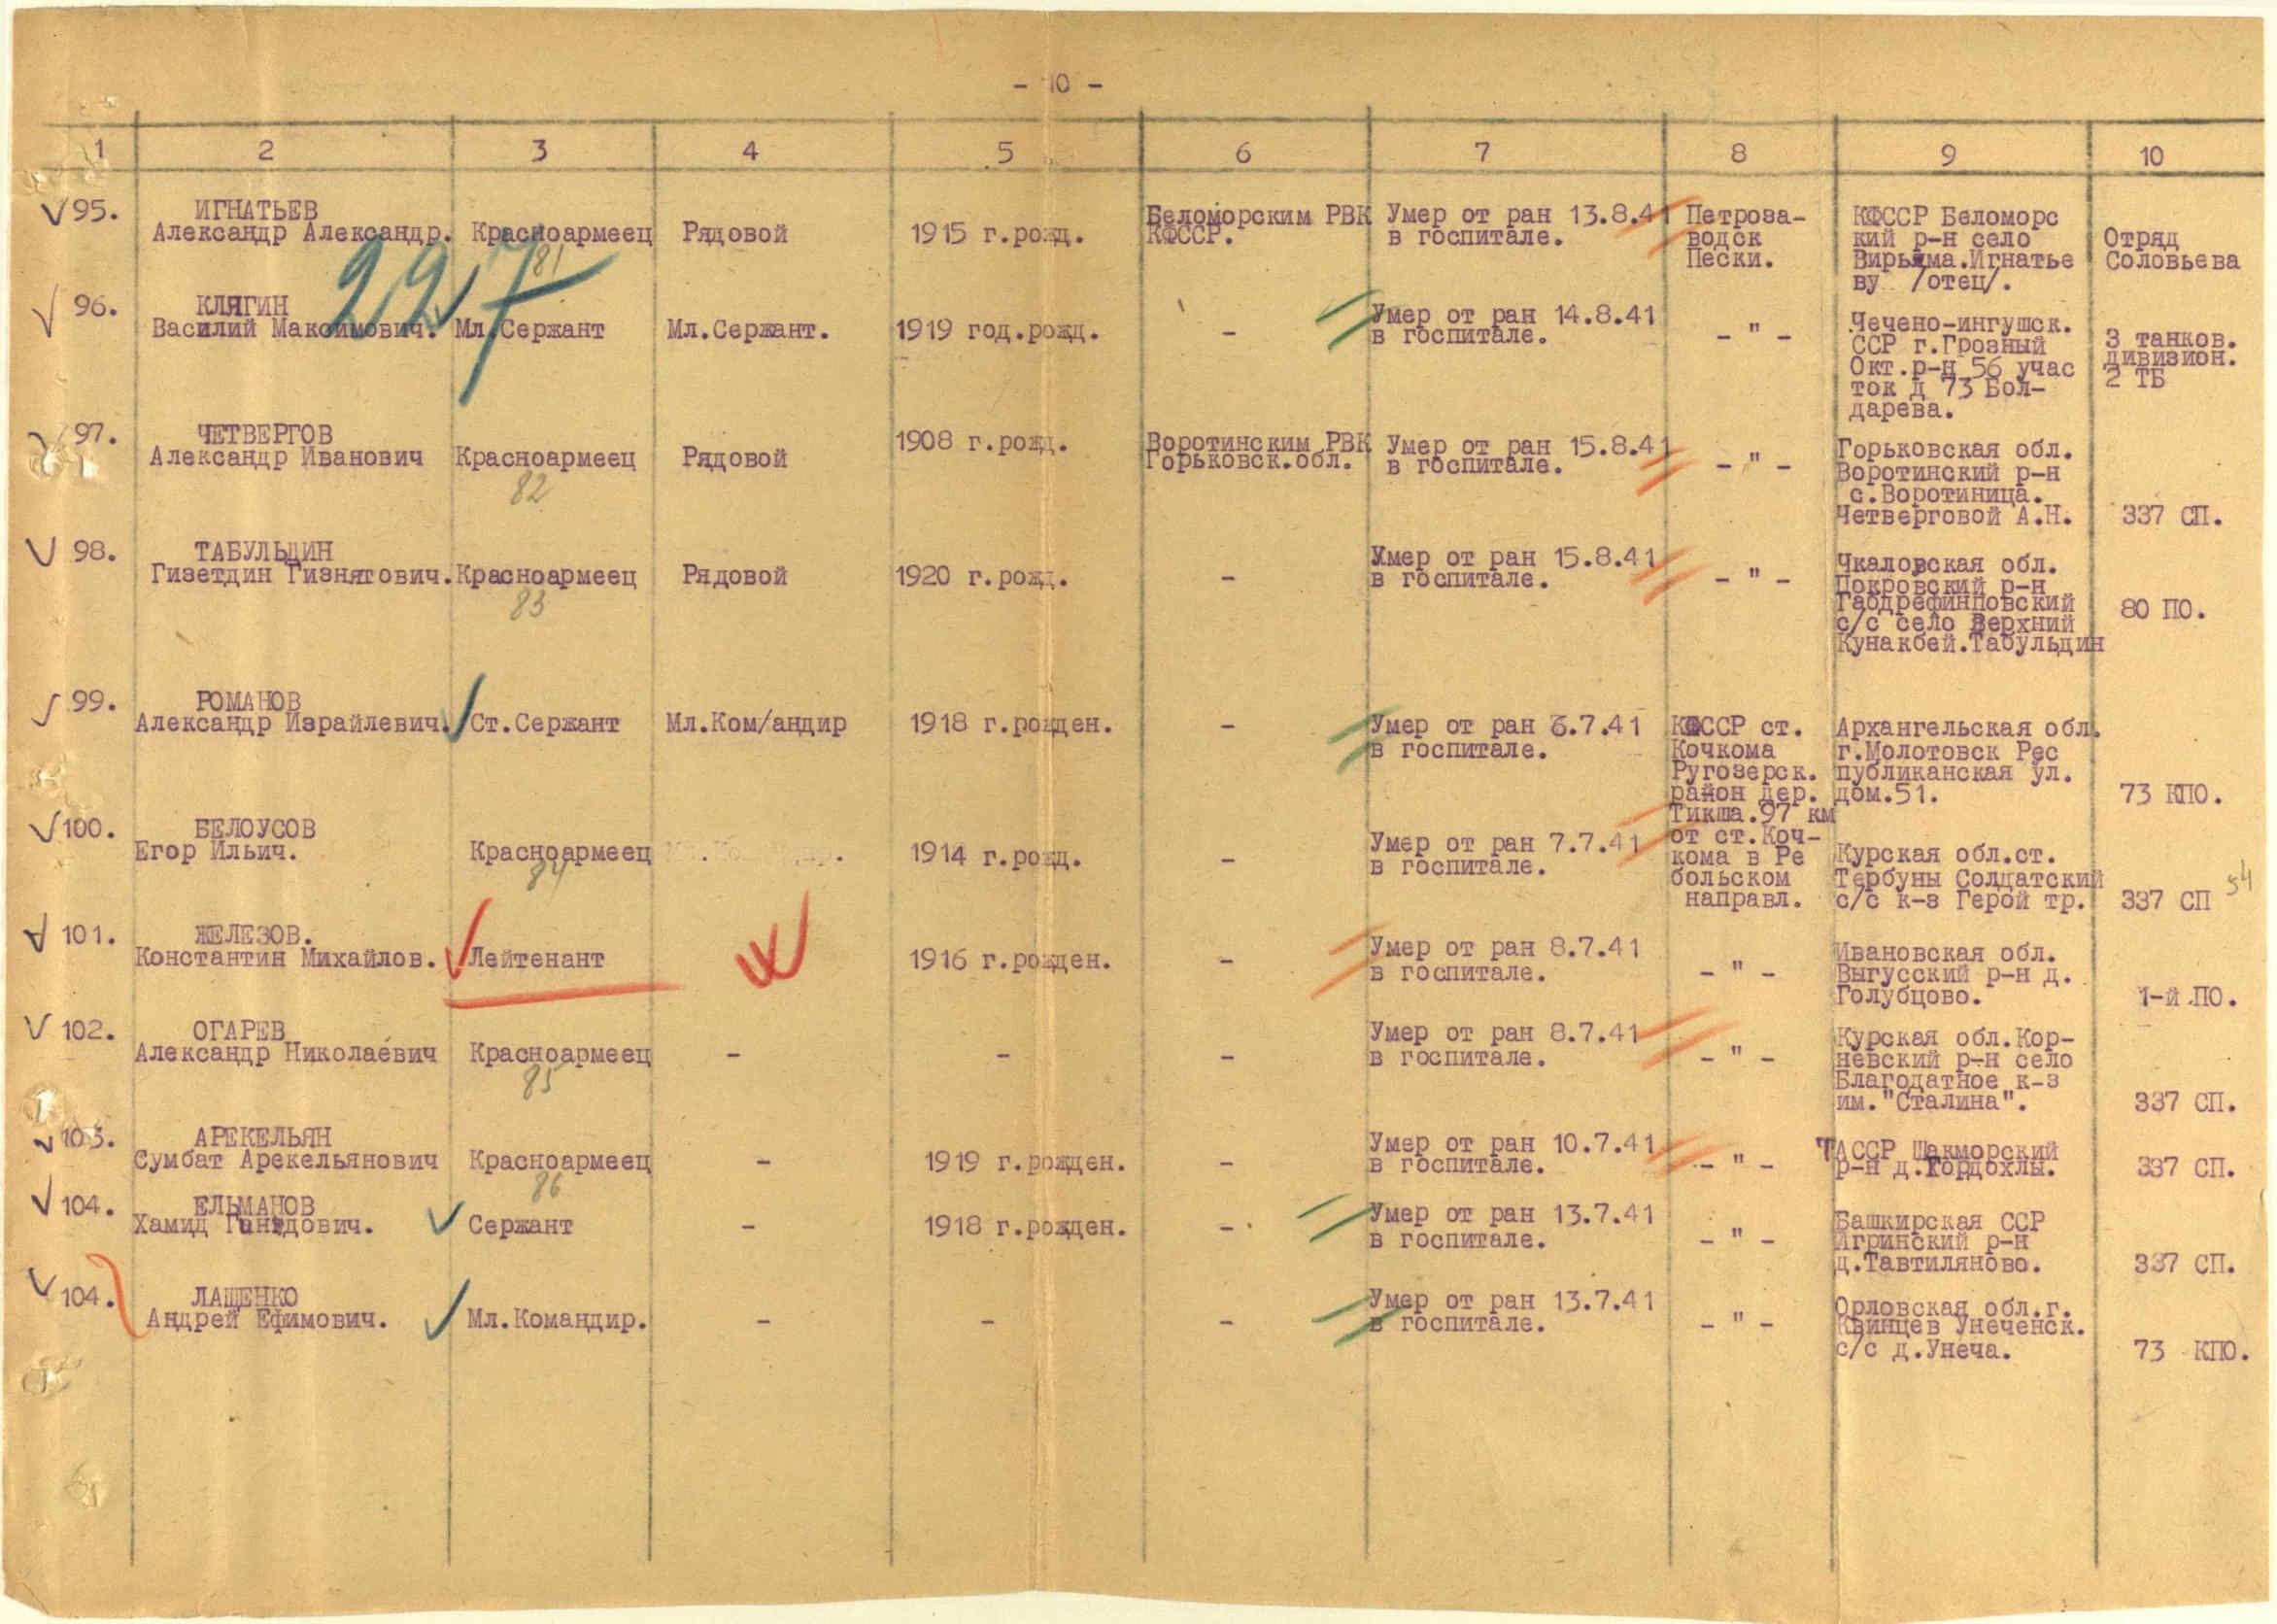 - 10 -
1 2 3 4 5 6 7 8 9 10
95. ИГНАТЬЕВ
Александр Александр. Красноармеец Рядовой 1915 г.рожд.
81
Беломорским РВК
КФССР.
Умер от ран 13.8.41
в госпитале.
Петроза-
водск
Пески.
КФССР Беломорс
кий р-н село
Вирьяма.Игнатье
ву /отец/.
Отряд
Соловьева
227
96. КЛЯГИН
Василий Максимович. Мл.Сержант Мл.Сержант. 1919 год.рожд. -
Умер от ран 14.8.41
в госпитале.
- " -
Чечено-ингушск.
ССР г.Грозный
Окт.р-н 56 учас
ток д 73 Бол-
дарева.
3 танков.
дивизион.
2 ТБ
97. ЧЕТВЕРГОВ
Александр Иванович Красноармеец Рядовой 1908 г.рожд.
82
Воротинским РВК
Горьковск.обл.
Умер от ран 15.8.41
в госпитале.
- " -
Горьковская обл.
Воротинский р-н
с.Воротиница.
Четверговой А.Н.
337 СП.
98. ТАБУЛЬДИН
Гизетдин Гизнятович. Красноармеец Рядовой 1920 г.рожд. -
83
Умер от ран 15.8.41
в госпитале.
- " -
Чкаловская обл.
Покровский р-н
Габдрефинповский
с/с село Верхний
Кунакбей.Табульдин
80 ПО.
99. РОМАНОВ
Александр Израйлевич. Ст.Сержант Мл.Ком/андир 1918 г.рожден. -
Умер от ран 6.7.41
в госпитале.
КФССР ст.
Кочкома
Ругозерск.
район дер.
Тикша.97 км
от ст.Коч-
кома в Ре
больском
направл.
Архангельская обл.
г.Молотовск Рес
публиканская ул.
дом.51.
73 КПО.
100. БЕЛОУСОВ
Егор Ильич. Красноармеец 1914 г.рожд. -
84
Умер от ран 7.7.41
в госпитале.
Курская обл.ст.
Тербуны Солдатский
с/с к-з Герой тр.
337 СП
54
101. ЖЕЛЕЗОВ.
Константин Михайлов. Лейтенант 1916 г.рожден. -
Умер от ран 8.7.41
в госпитале.
- " -
Ивановская обл.
Выгусский р-н д.
Голубцово.
1-й ПО.
102. ОГАРЕВ
Александр Николаевич Красноармеец - - -
85
Умер от ран 8.7.41
в госпитале.
- " -
Курская обл.Кор-
невский р-н село
Благодатное к-з
им."Сталина".
337 СП.
103. АРЕКЕЛЬЯН
Сумбат Арекельянович Красноармеец - 1919 г.рожден. -
86
Умер от ран 10.7.41
в госпитале.
- " -
ТАССР Шакморский
р-н д.Гордохлы.
337 СП.
104. ЕЛЬМАНОВ
Хамид Сержант - 1918 г.рожден. -
Умер от ран 13.7.41
в госпитале.
- " -
Башкирская ССР
Игринский р-н
д.Тавтиляново.
337 СП.
104. ЛАЩЕНКО
Андрей Ефимович. Мл.Командир. - - -
Умер от ран 13.7.41
в госпитале.
- " -
Орловская обл.г.
Квинцев Унеченск.
с/с д.Унеча.
73 КПО.